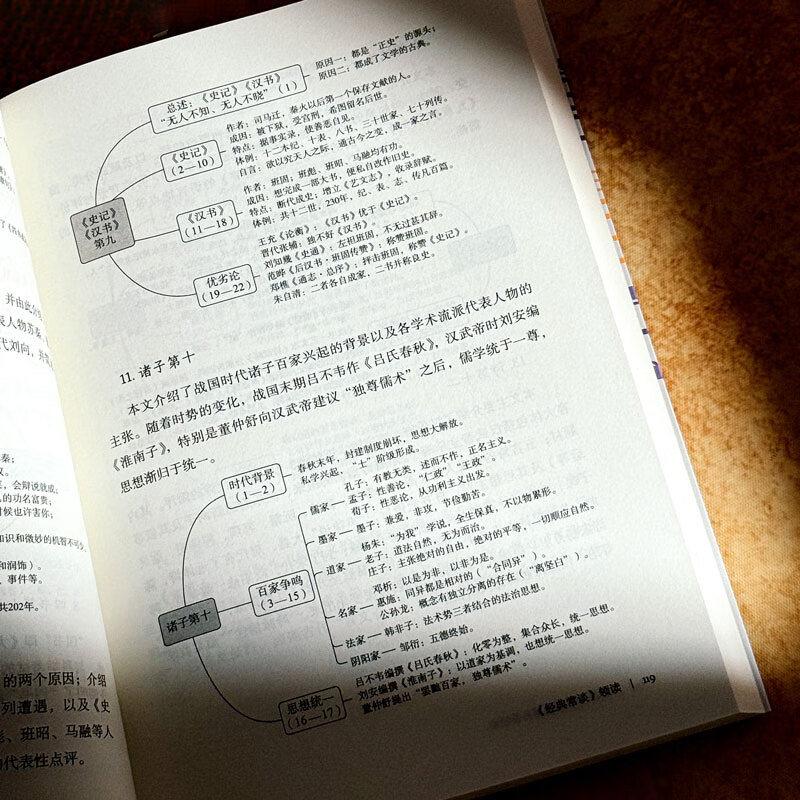 总述：《史记》《汉书》
“无人不知、无人不晓”（1）
原因一：都是“正史”的源头；
原因二：都成了文学的古典。
《史记》
（2—10）
作者：司马迁，秦火以后第一个保存文献的人。
成因：被下狱，受宫刑，希图留名后世。
特点：据事实录，使善恶自见。
体例：十二本纪、十表、八书、三十世家、七十列传。
自言：欲以究天人之际，通古今之变，成一家之言。
《史记》
《汉书》
第九
《汉书》
（11—18）
作者：班固；班彪、班昭、马融均有功。
成因：想完成一部大书，便私自改作旧史。
特点：断代成史；增立《艺文志》，收录辞赋。
体例：共十二世，230年，纪、表、志、传凡百篇。
优劣论
（19—22）
王充《论衡》：《汉书》优于《史记》。
晋代张辅：独不好《汉书》。
刘知幾《史通》：左袒班固，不无过甚其辞。
范晔《后汉书·班固传赞》：称赞班固。
郑樵《通志·总序》：抨击班固，称赞《史记》。
朱自清：二者各自成家，二书并称良史。
11. 诸子第十
本文介绍了战国时代诸子百家兴起的背景以及各学术流派代表人物的
主张。随着时势的变化，战国末期吕不韦作《吕氏春秋》，汉武帝时刘安编
《淮南子》，特别是董仲舒向汉武帝建议“独尊儒术”之后，儒学统于一尊，
思想渐归于统一。
时代背景
（1—2）
春秋末年，封建制度崩坏，思想大解放。
私学兴起，“士”阶级形成。
诸子第十
百家争鸣
（3—15）
儒家
孔子：有教无类，述而不作，正名主义。
孟子：性善论，“仁政”“王政”。
荀子：性恶论，从功利主义出发。
墨家
墨子：兼爱，非攻，节俭勤苦。
道家
杨朱：“为我”学说，全生保真，不以物累形。
老子：道法自然，无为而治。
庄子：主张绝对的自由，绝对的平等，一切顺应自然。
名家
邓析：以是为非，以非为是。
惠施：同异都是相对的（“合同异”）。
公孙龙：概念有独立分离的存在（“离坚白”）。
法家
韩非子：法术势三者结合的法治思想。
阴阳家
邹衍：五德终始。
思想统一
（16—17）
吕不韦编撰《吕氏春秋》：化零为整，集合众长，统一思想。
刘安编撰《淮南子》：以道家为基调，也想统一思想。
董仲舒提出“罢黜百家，独尊儒术”。
《经典常谈》领读 | 119
并由此
代刘向，
会辩说就成；
的功名富贵；
时候也许害你；
知识和微妙的机智不可头
和润饰）。
、事件等。
共202年。
的两个原因；介绍
列遭遇，以及《史
彪、班昭、马融等人
代表性点评。